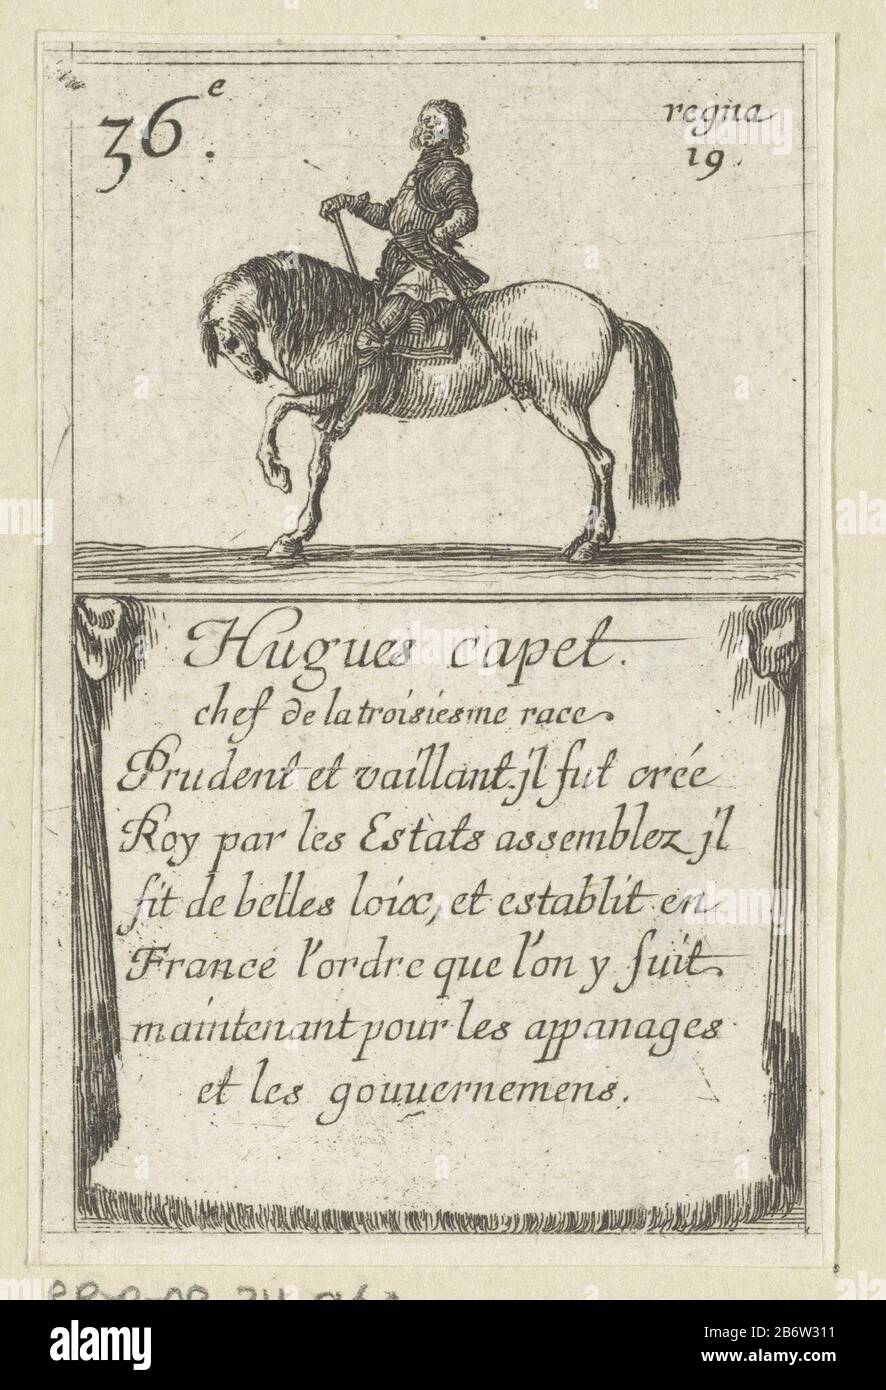 36.e
regna
19.
Hugues capet.
chef de la troisiesme race
Prudent et vaillant. jl fut creé
Roy par les Estats assemblez jl
fit de belles loix, et establit en
France l'ordre que l'on y suit
maintenant pour les appanages
et les gouuernemens.
alamy
Image ID: 2B6W311
www.alamy.com